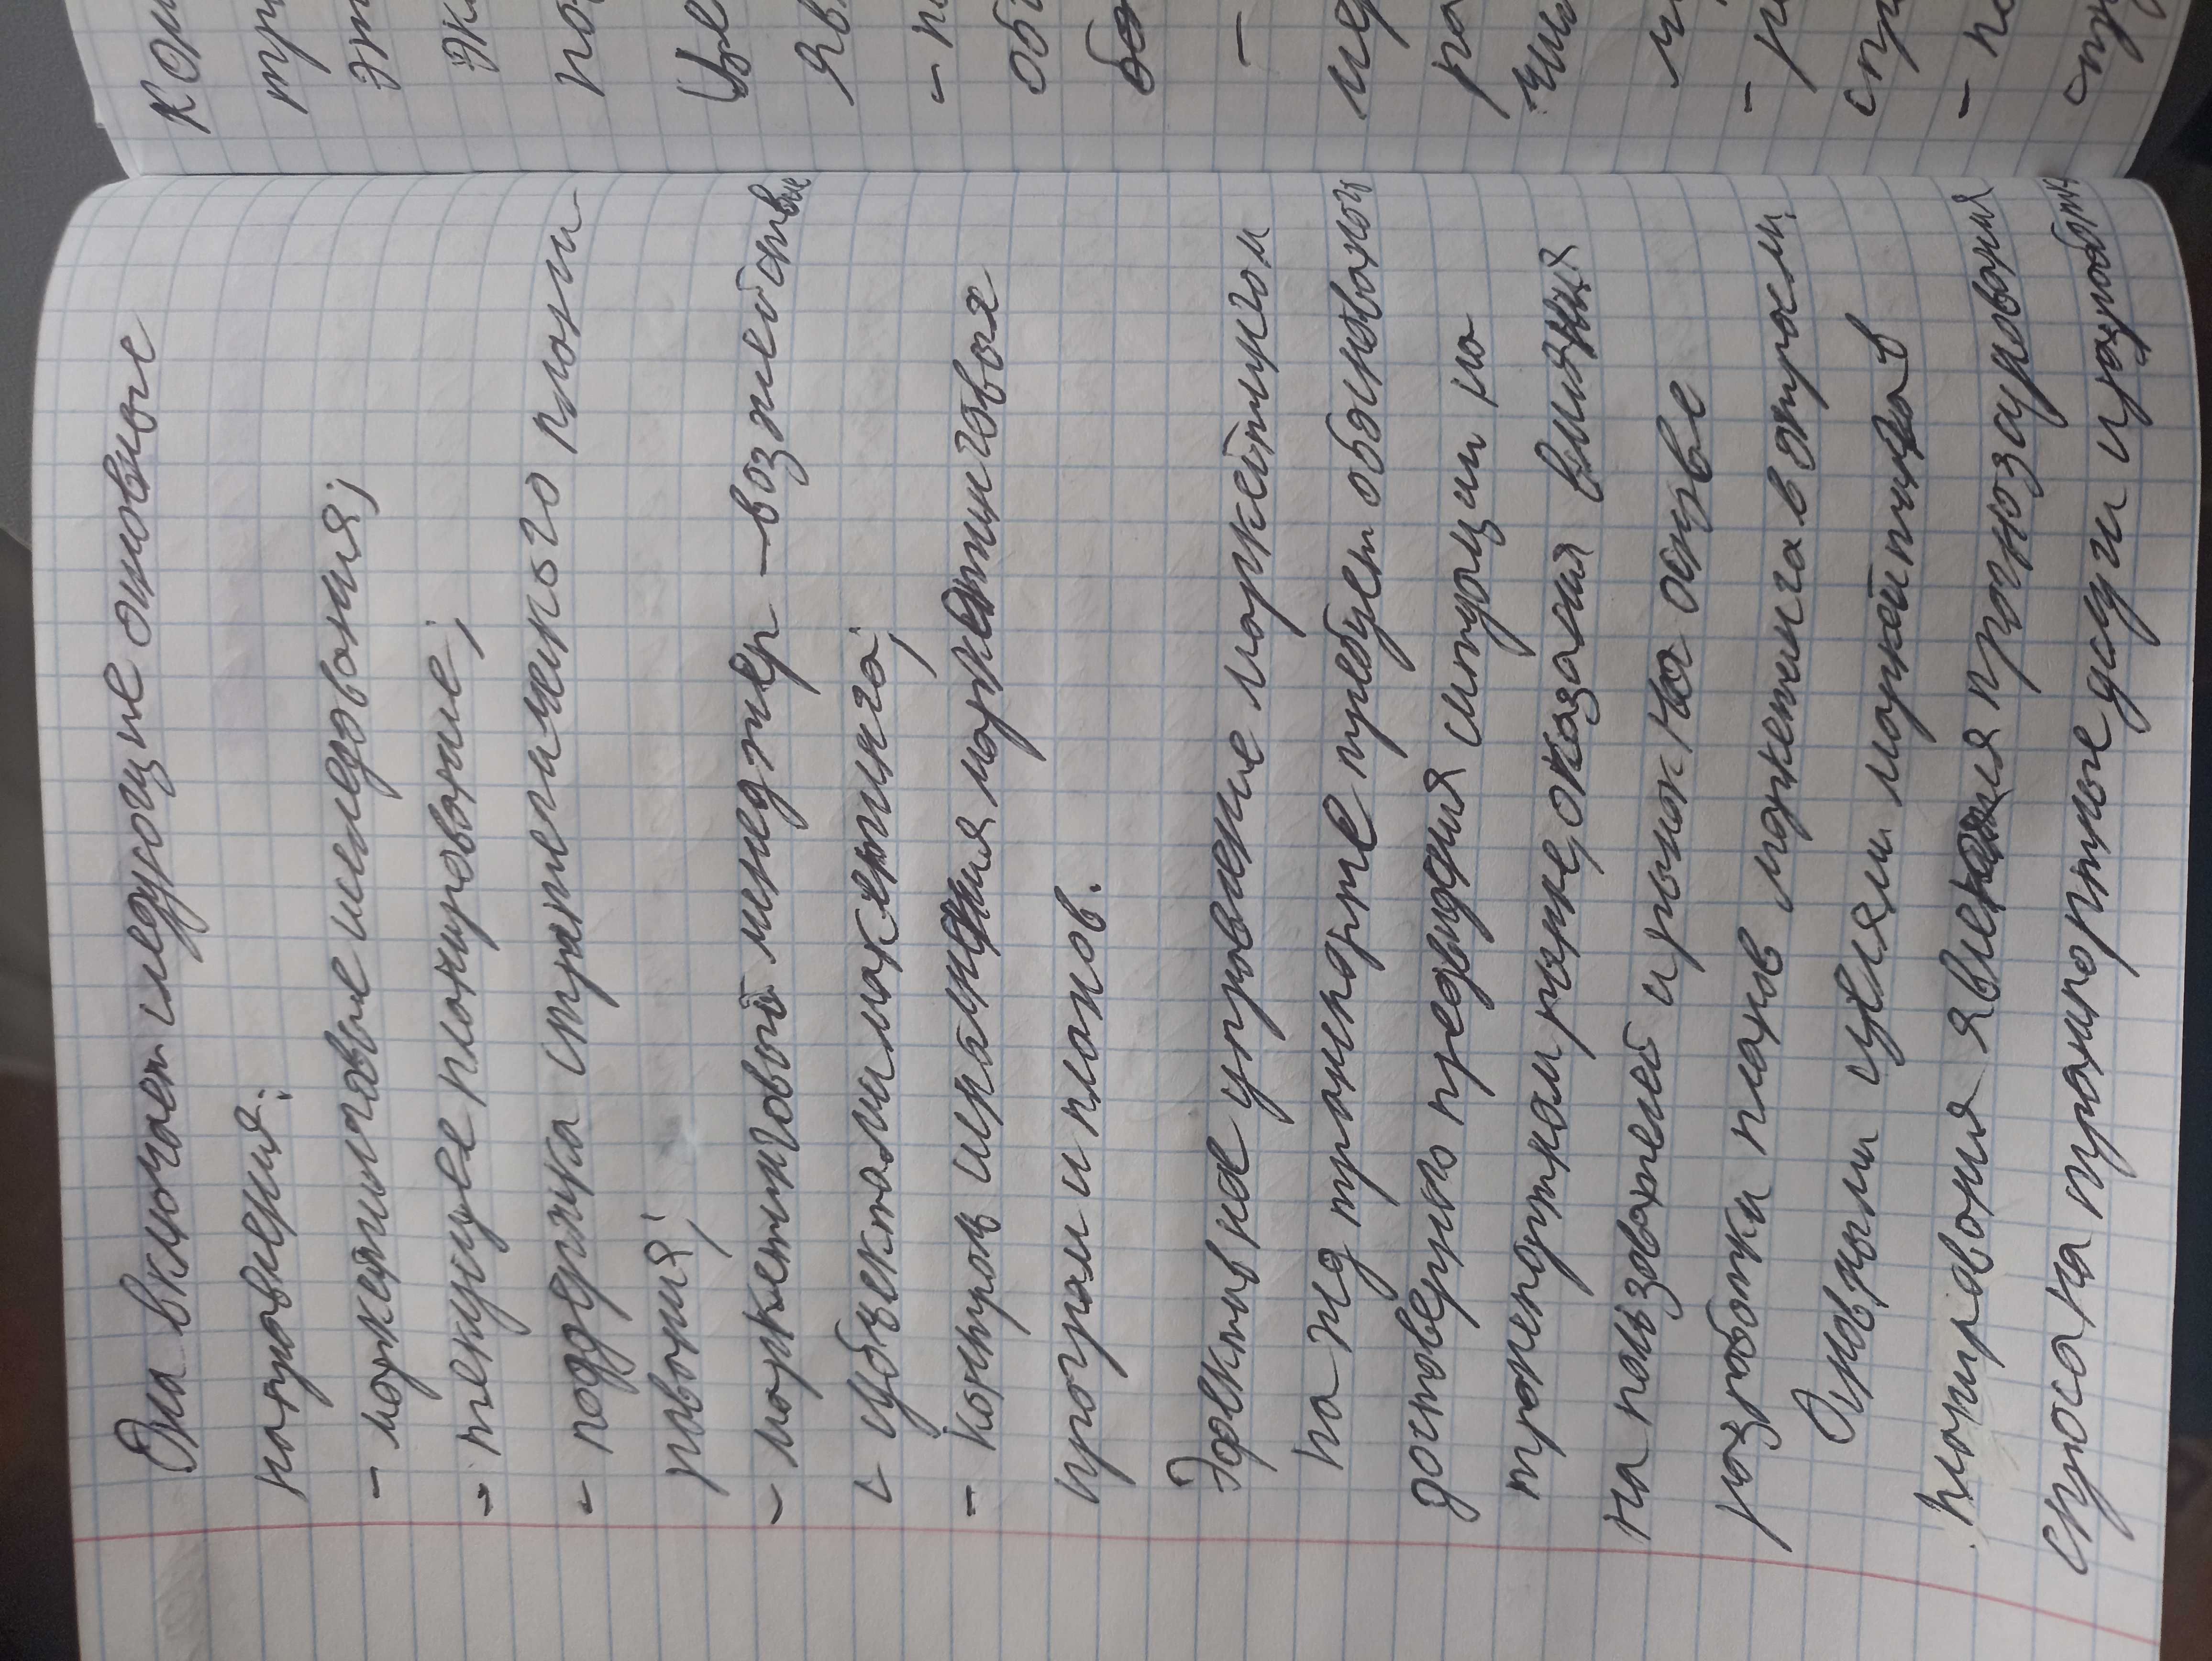 Она включает следующие основные
направления:
- маркетинговые исследования;
- текущее планирование;
- поддержка стратегического плани-
рования;
- маркетинговый менеджер - воздействие
с субъектами маркетинга;
- контроль исполнения маркетинговых
програм и планов.
Эффективное управление маркетингом
на жд транспорте требует обоснования
достоверного предвидения ситуации на
транспортном рынке, оказания влияния
на пользователей и рынок на основе
разработки планов маркетинга в отрасли.
Основными целями маркетинга в
планирования является прогнозирования
спроса на транспортные услуги и разработка
ком
тр
эт
эк
по
Це
яв
- п
об
-
пер
ра
- р
спр
- по
стр